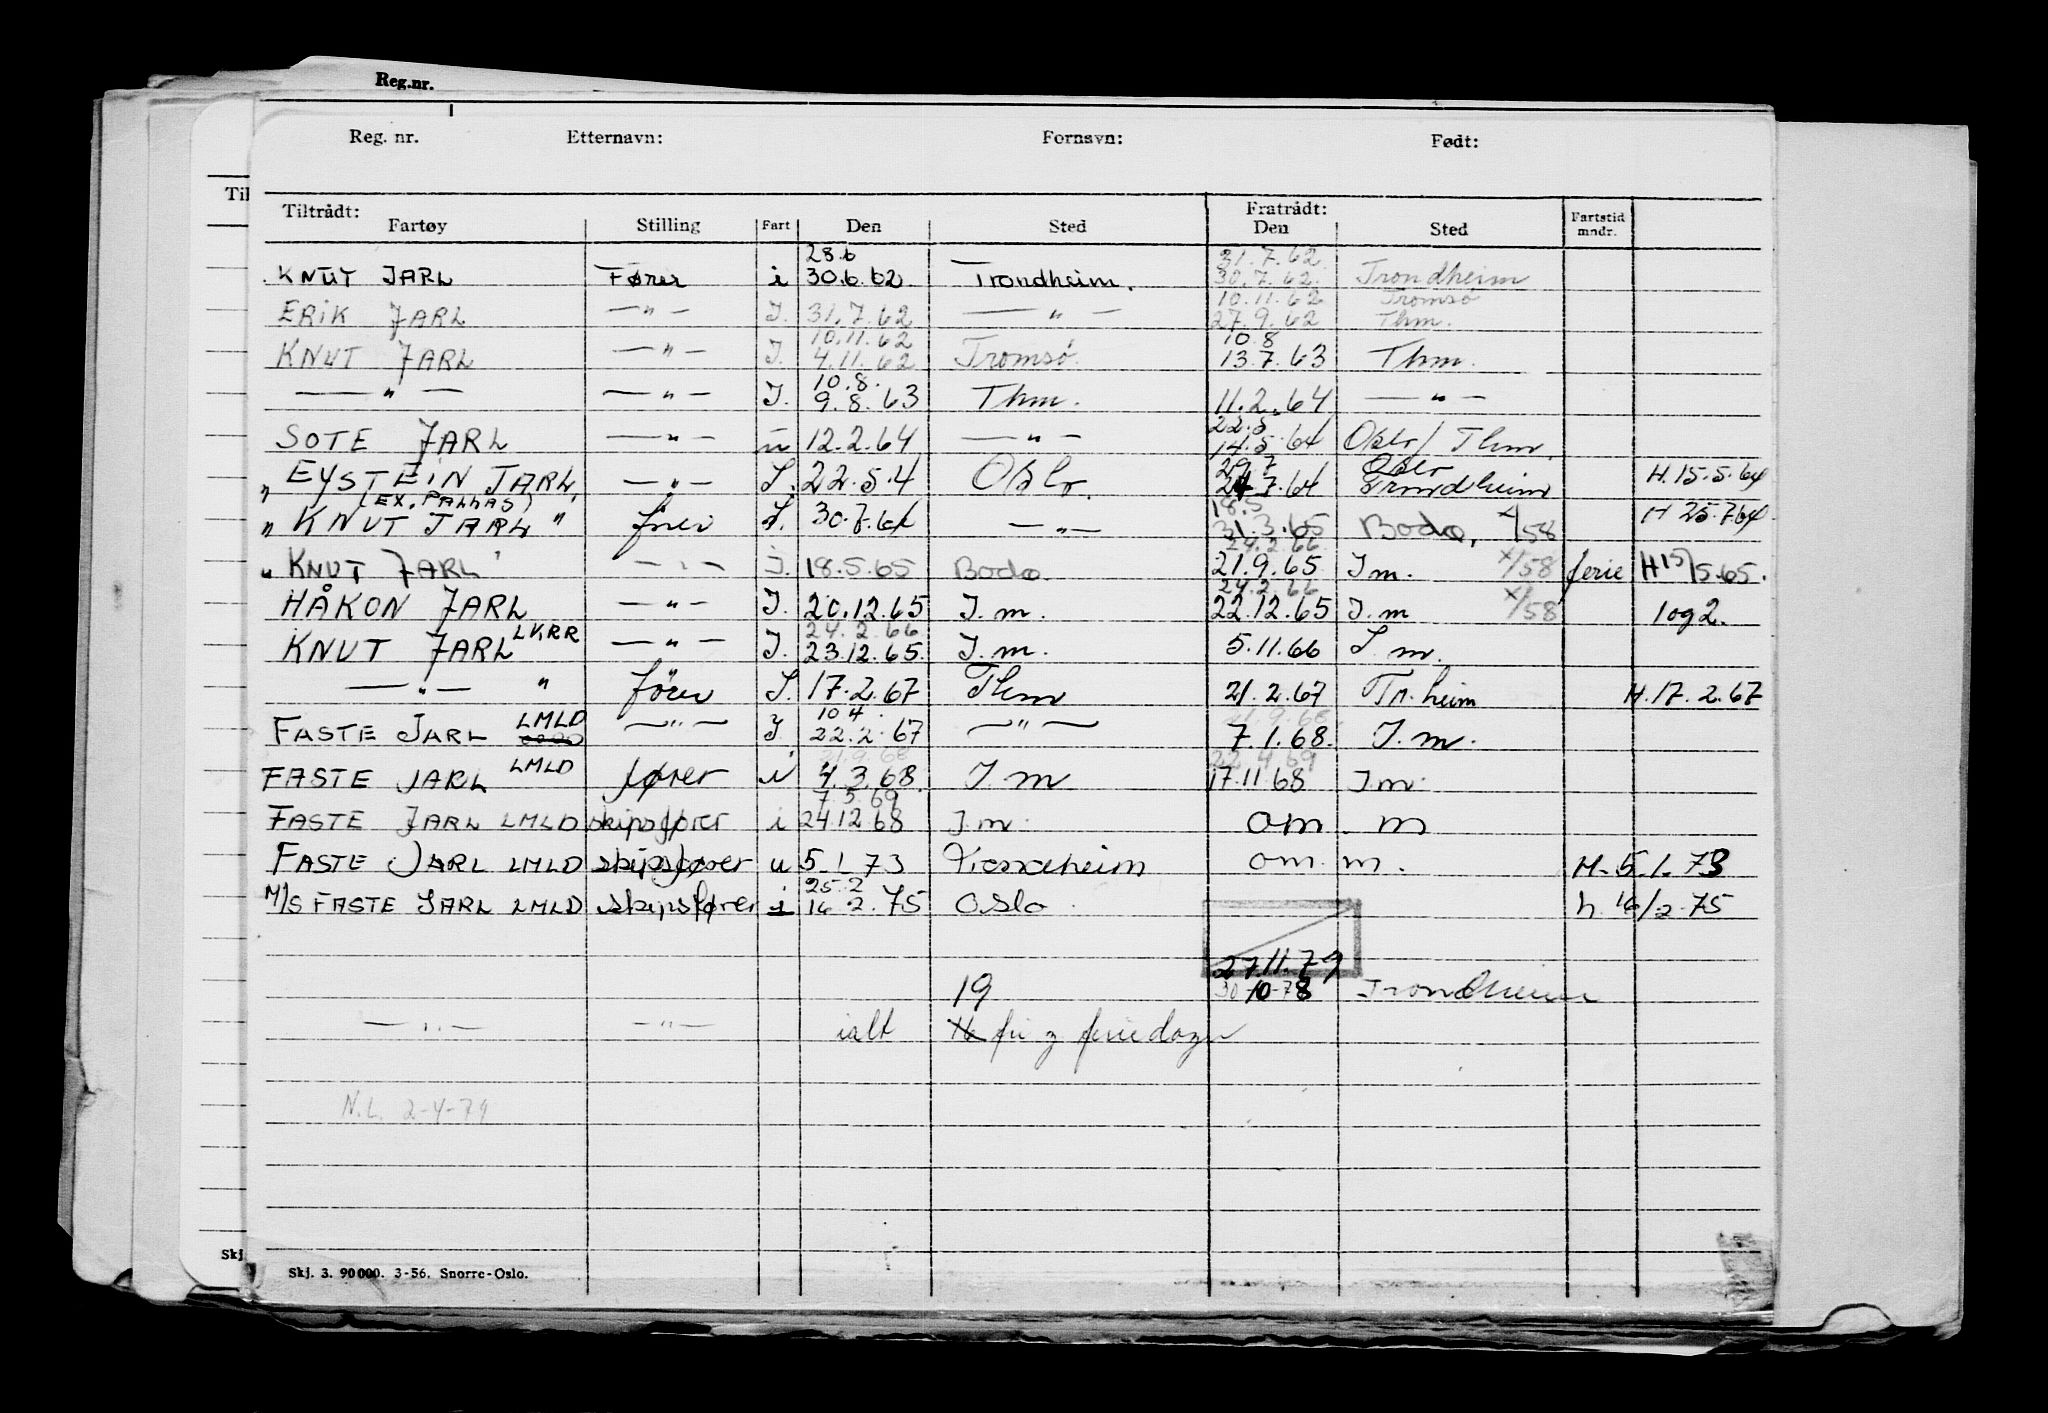 Reg.nr.
Reg. nr. Etternavn: Fornavn: Født:
Til
Tiltrådt: Fratrådt:
Fartøy Stilling Fart Den Sted Den Sted Fartstid mndr.
28.6 31.7.62
KNUT JARL Fører i 30.6.62 Trondheim. 30.7.62 Trondheim
10.11.62 Tromsø
ERIK JARL —"— I. 31.7.62 —"— 27.9.62 Thm.
10.11.62 10.8
KNUT JARL —"— I. 4.11.62 Tromsø. 13.7.63 Thm.
10.8.
—"— —"— I. 9.8.63 Thm. 11.2.64 —"—
22.5
SOTE JARL —"— u 12.2.64 —"— 14.5.64 Oslo/Thm.
29.7 Oslo
"EYSTEIN JARL" —"— I. 22.5.4 Oslo. 24.7.64 Trondheim H.15.5.64
(EX. PALLAS) 18.5
"KNUT JARL" fører I. 30.7.64 —"— 31.3.65 Bodø, x/58 H 25.7.64
24.2.66
"KNUT JARL" —"— I. 18.5.65 Bodø 21.9.65 I m. x/58 ferie H 15/5.65.
24.2.66
HÅKON JARL —"— I. 20.12.65 I. m. 22.12.65 I. m x/58 1 og 2.
24.2.66
KNUT JARL LKRR —"— I. 23.12.65. I. m. 5.11.66 I. m.
—"— " fører I. 17.2.67 Thm 21.2.67 Tr.heim H.17.2.67
10 4 21.9.68
FASTE JARL LMLD —"— I. 22.2.67 —"— 7.1.68. I. m.
21.9.68 22.4.69
FASTE JARL LMLD fører i 4.3.68 I. m 17.11.68 I m.
7.5.69
FASTE JARL LMLD skipsfører i 24.12.68 I. m. om. m
FASTE JARL LMLD skipsfører u 5.1.73 Trondheim om. m. H. 5.1.73
25.2
M/S FASTE JARL LMLD skipsfører i 16 2.75 Oslo h. 16/2-75
27.11.79
19 30-10-78 Trondheim
—"— —"— ialt 16 fri og feriedager
N.L. 2-4-79
Skj.
Skj. 3. 90 000. 3-56. Snorre-Oslo.